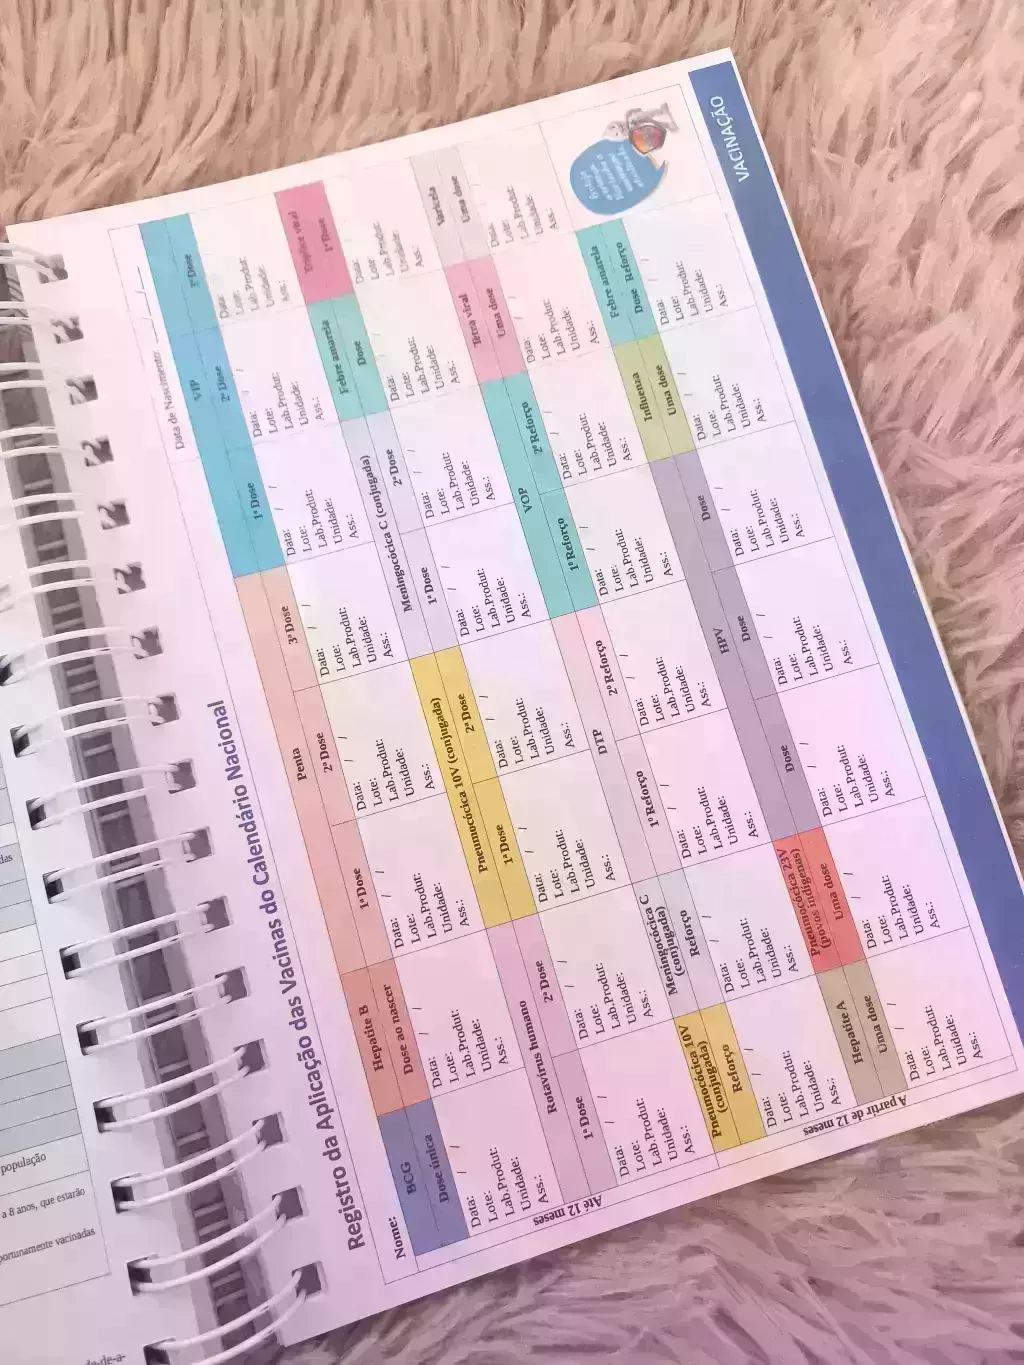 Registro da Aplicação das Vacinas do Calendário Nacional
Nome:
Data de Nascimento: __/__/__
Até 12 meses
BCG
Dose única
Data: / /
Lote:
Lab.Produt:
Unidade:
Ass.:
Hepatite B
Dose ao nascer
Data: / /
Lote:
Lab.Produt:
Unidade:
Ass.:
Penta
1ª Dose
Data: / /
Lote:
Lab.Produt:
Unidade:
Ass.:
2ª Dose
Data: / /
Lote:
Lab.Produt:
Unidade:
Ass.:
3ª Dose
Data: / /
Lote:
Lab.Produt:
Unidade:
Ass.:
VIP
1ª Dose
Data: / /
Lote:
Lab.Produt:
Unidade:
Ass.:
2ª Dose
Data: / /
Lote:
Lab.Produt:
Unidade:
Ass.:
3ª Dose
Data: / /
Lote:
Lab.Produt:
Unidade:
Ass.:
Rotavírus humano
1ª Dose
Data: / /
Lote:
Lab.Produt:
Unidade:
Ass.:
2ª Dose
Data: / /
Lote:
Lab.Produt:
Unidade:
Ass.:
Pneumocócica 10V (conjugada)
1ª Dose
Data: / /
Lote:
Lab.Produt:
Unidade:
Ass.:
2ª Dose
Data: / /
Lote:
Lab.Produt:
Unidade:
Ass.:
Meningocócica C (conjugada)
1ª Dose
Data: / /
Lote:
Lab.Produt:
Unidade:
Ass.:
2ª Dose
Data: / /
Lote:
Lab.Produt:
Unidade:
Ass.:
Febre amarela
Dose
Data: / /
Lote:
Lab.Produt:
Unidade:
Ass.:
Tríplice viral
1ª Dose
Data: / /
Lote:
Lab.Produt:
Unidade:
Ass.:
A partir de 12 meses
Pneumocócica 10V
(conjugada)
Reforço
Data: / /
Lote:
Lab.Produt:
Unidade:
Ass.:
Meningocócica C
(conjugada)
Reforço
Data: / /
Lote:
Lab.Produt:
Unidade:
Ass.:
DTP
1º Reforço
Data: / /
Lote:
Lab.Produt:
Unidade:
Ass.:
2º Reforço
Data: / /
Lote:
Lab.Produt:
Unidade:
Ass.:
VOP
1º Reforço
Data: / /
Lote:
Lab.Produt:
Unidade:
Ass.:
2º Reforço
Data: / /
Lote:
Lab.Produt:
Unidade:
Ass.:
Tetra viral
Uma dose
Data: / /
Lote:
Lab.Produt:
Unidade:
Ass.:
Varicela
Uma dose
Data: / /
Lote:
Lab.Produt:
Unidade:
Ass.:
Hepatite A
Uma dose
Data: / /
Lote:
Lab.Produt:
Unidade:
Ass.:
Pneumocócica 23V
(povos indígenas)
Uma dose
Data: / /
Lote:
Lab.Produt:
Unidade:
Ass.:
HPV
Dose
Data: / /
Lote:
Lab.Produt:
Unidade:
Ass.:
Dose
Data: / /
Lote:
Lab.Produt:
Unidade:
Ass.:
Dose
Data: / /
Lote:
Lab.Produt:
Unidade:
Ass.:
Influenza
Uma dose
Data: / /
Lote:
Lab.Produt:
Unidade:
Ass.:
Febre amarela
Dose Reforço
Data: / /
Lote:
Lab.Produt:
Unidade:
Ass.:
VACINAÇÃO
população
a 8 anos, que estarão
portunamente vacinadas